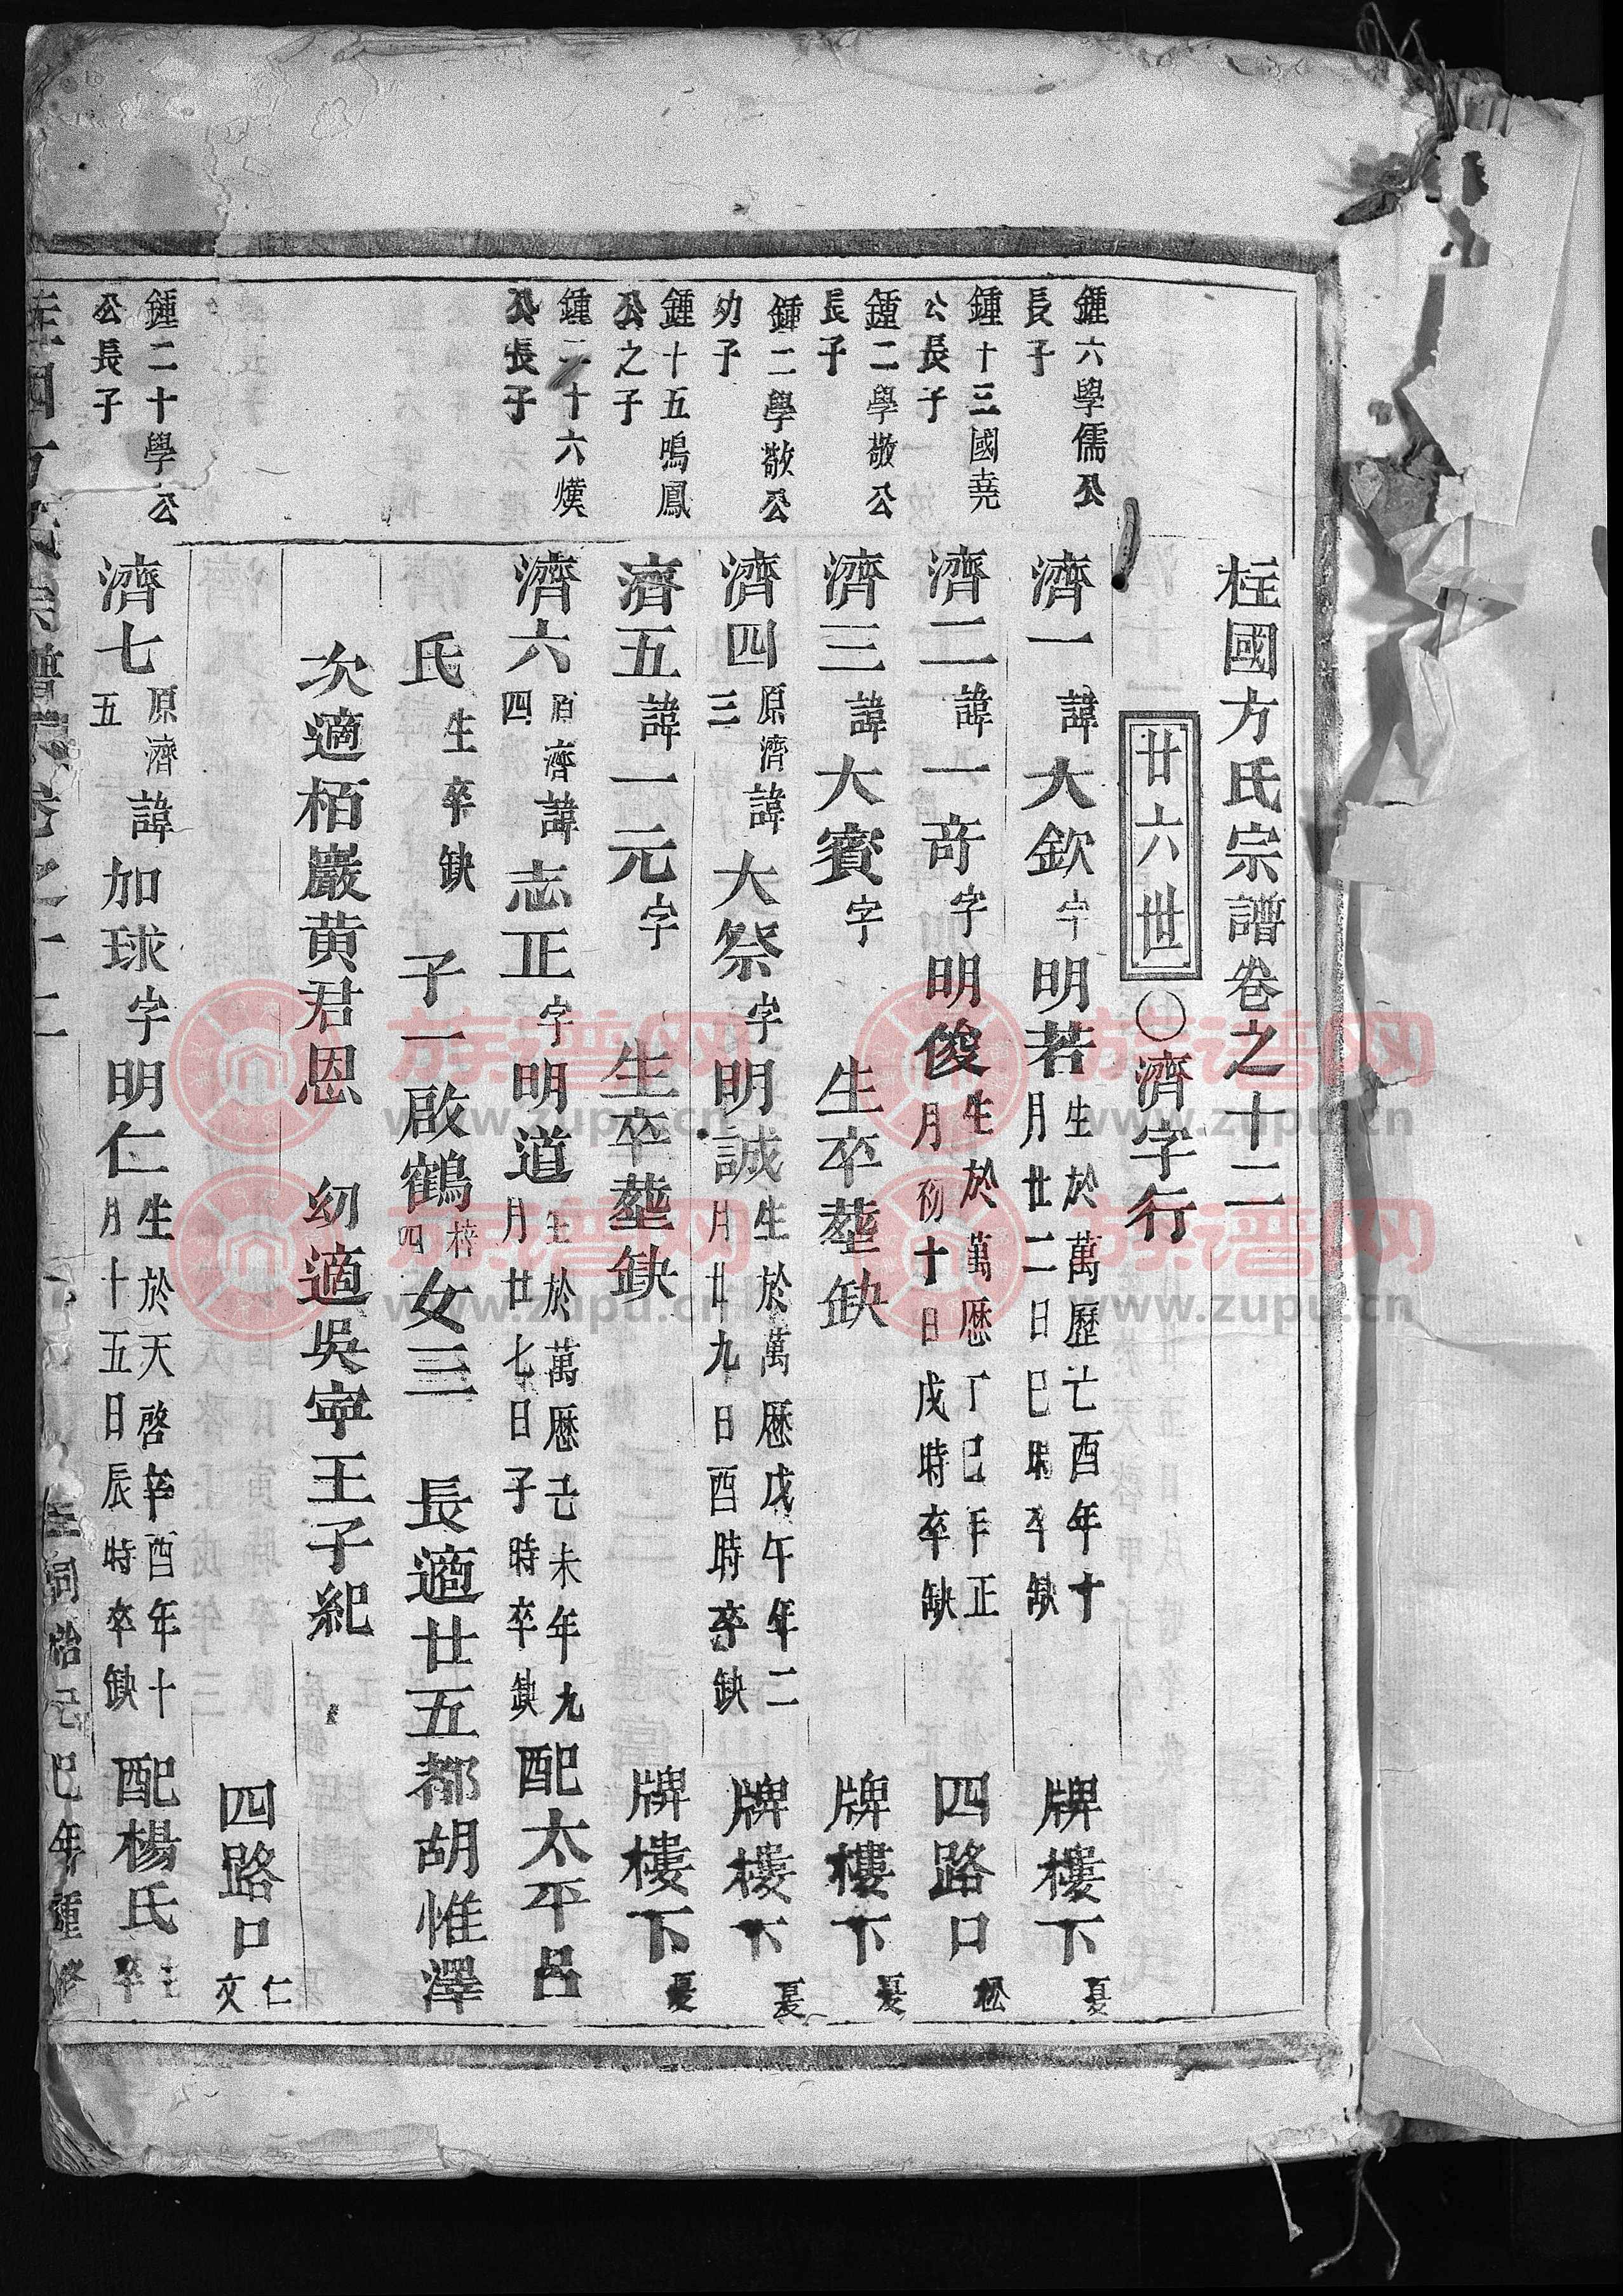 柱國方氏宗譜卷之十二
廿六世○濟字行
鍾六學儒公
長子
濟一諱大欽字明若
生於萬歷亡酉年十
月廿二日巳時卒缺
牌樓下
夏
鍾十三國堯
公長子
濟二諱一奇字明俊
生於萬歷丁巳年正
月初十日戌時卒缺
四路口
松
鍾二學敬公
長子
濟三諱大賓字 生卒塟缺
牌樓下
夏
鍾二學敬公
幼子
濟四
原濟
三
諱大祭字明誠
生於萬歷戊午年二
月廿九日酉時卒缺
牌樓下
夏
鍾十五鳴鳳
公之子
濟五諱一元字 生卒塟缺
牌樓下
夏
鍾二十六熯
公長子
濟六
原濟
四
諱志正字明道
生於萬歷己未年九
月廿七日子時卒缺
配太平呂
氏
生卒缺
子一啟鶴
梓
四
女三 長適廿五都胡惟澤
次適栢巖黄君恩 幼適吳寧王子紀
四路口
仁
文
鍾二十學公
公長子
濟七
原濟
五
諱加球字明仁
生於天啓辛酉年十
月十五日辰時卒缺
配楊氏
生
卒
同治己巳年重修
族谱网
www.zupu.cn
族谱网
www.zupu.cn
族谱网
www.zupu.cn
族谱网
www.zupu.cn